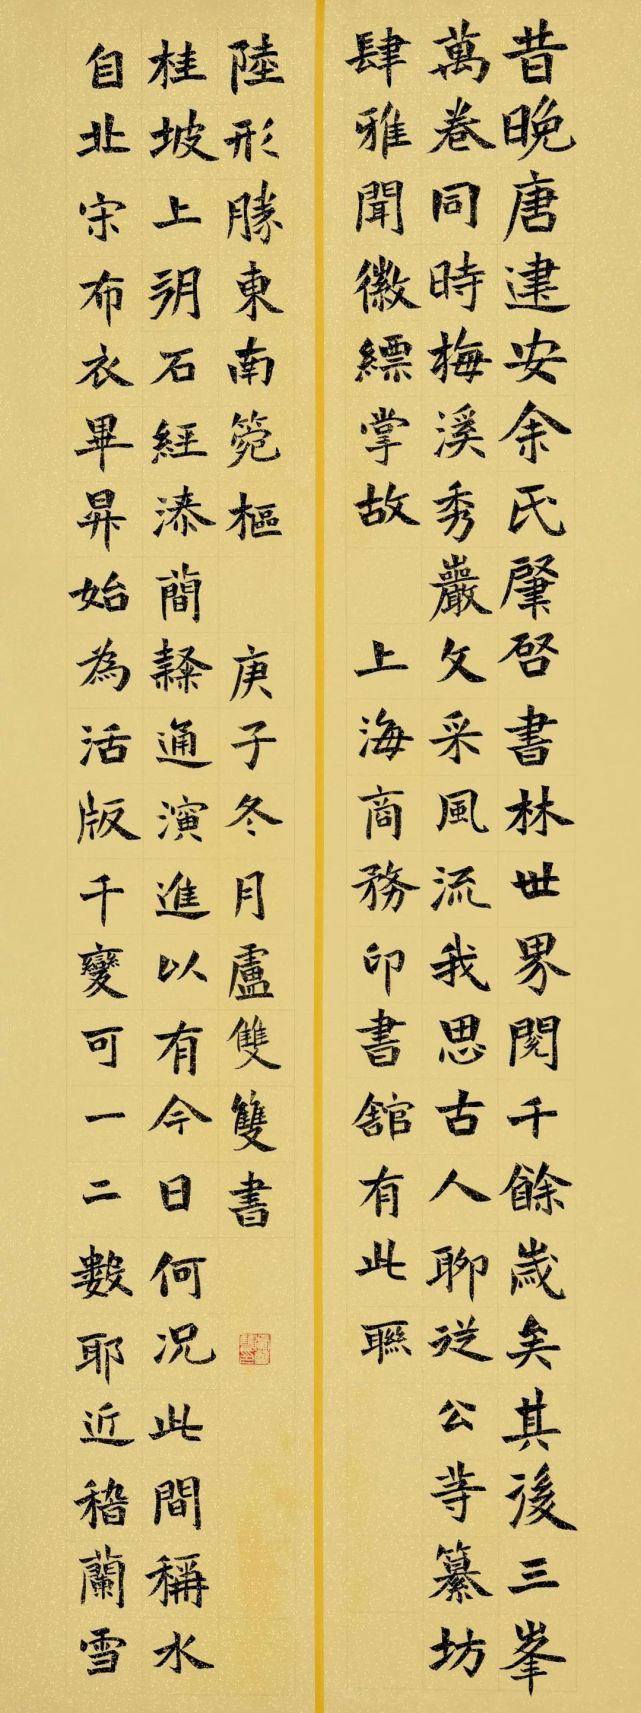 昔晚唐建安余氏肇启書林世界閱千餘歲矣其後三峯
萬卷同時梅溪秀巖文采風流我思古人聊從公等纂坊
肆雅聞徽縹掌故 上海商務印書舘有此聯
自北宋布衣畢昇始為活版千變可一二數耶近稽蘭雪
桂坡上朔石經漆簡隸通演進以有今日何況此間稱水
陸形勝東南筦樞 庚子冬月盧雙雙書